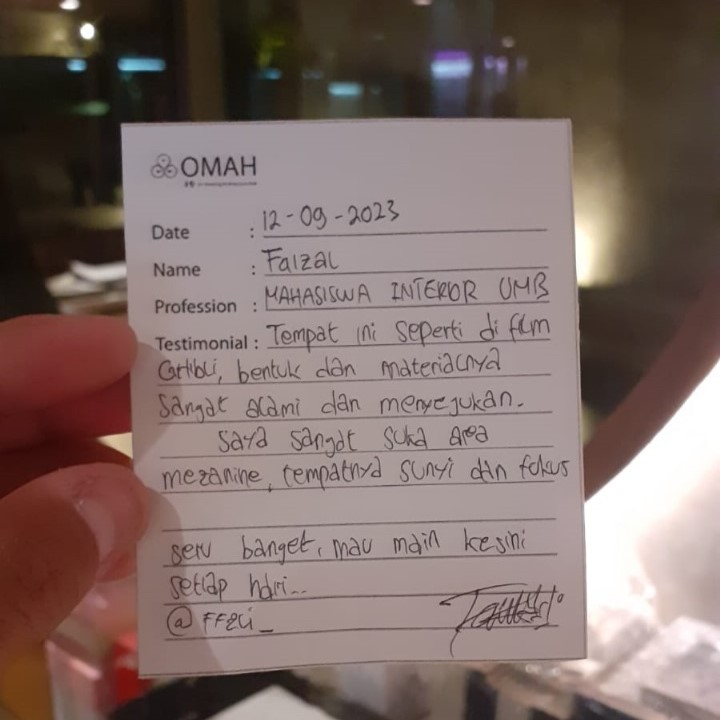 OMAH
Date : 12-09-2023
Name : Faizal
Profession : MAHASISWA INTERIOR UMB
Testimonial : Tempat ini seperti di film
Ghibli, bentuk dan materialnya
sangat alami dan menyejukan.
saya sangat suka area
mezanine, tempatnya sunyi dan fokus
seru banget, mau main kesini
setiap hari...